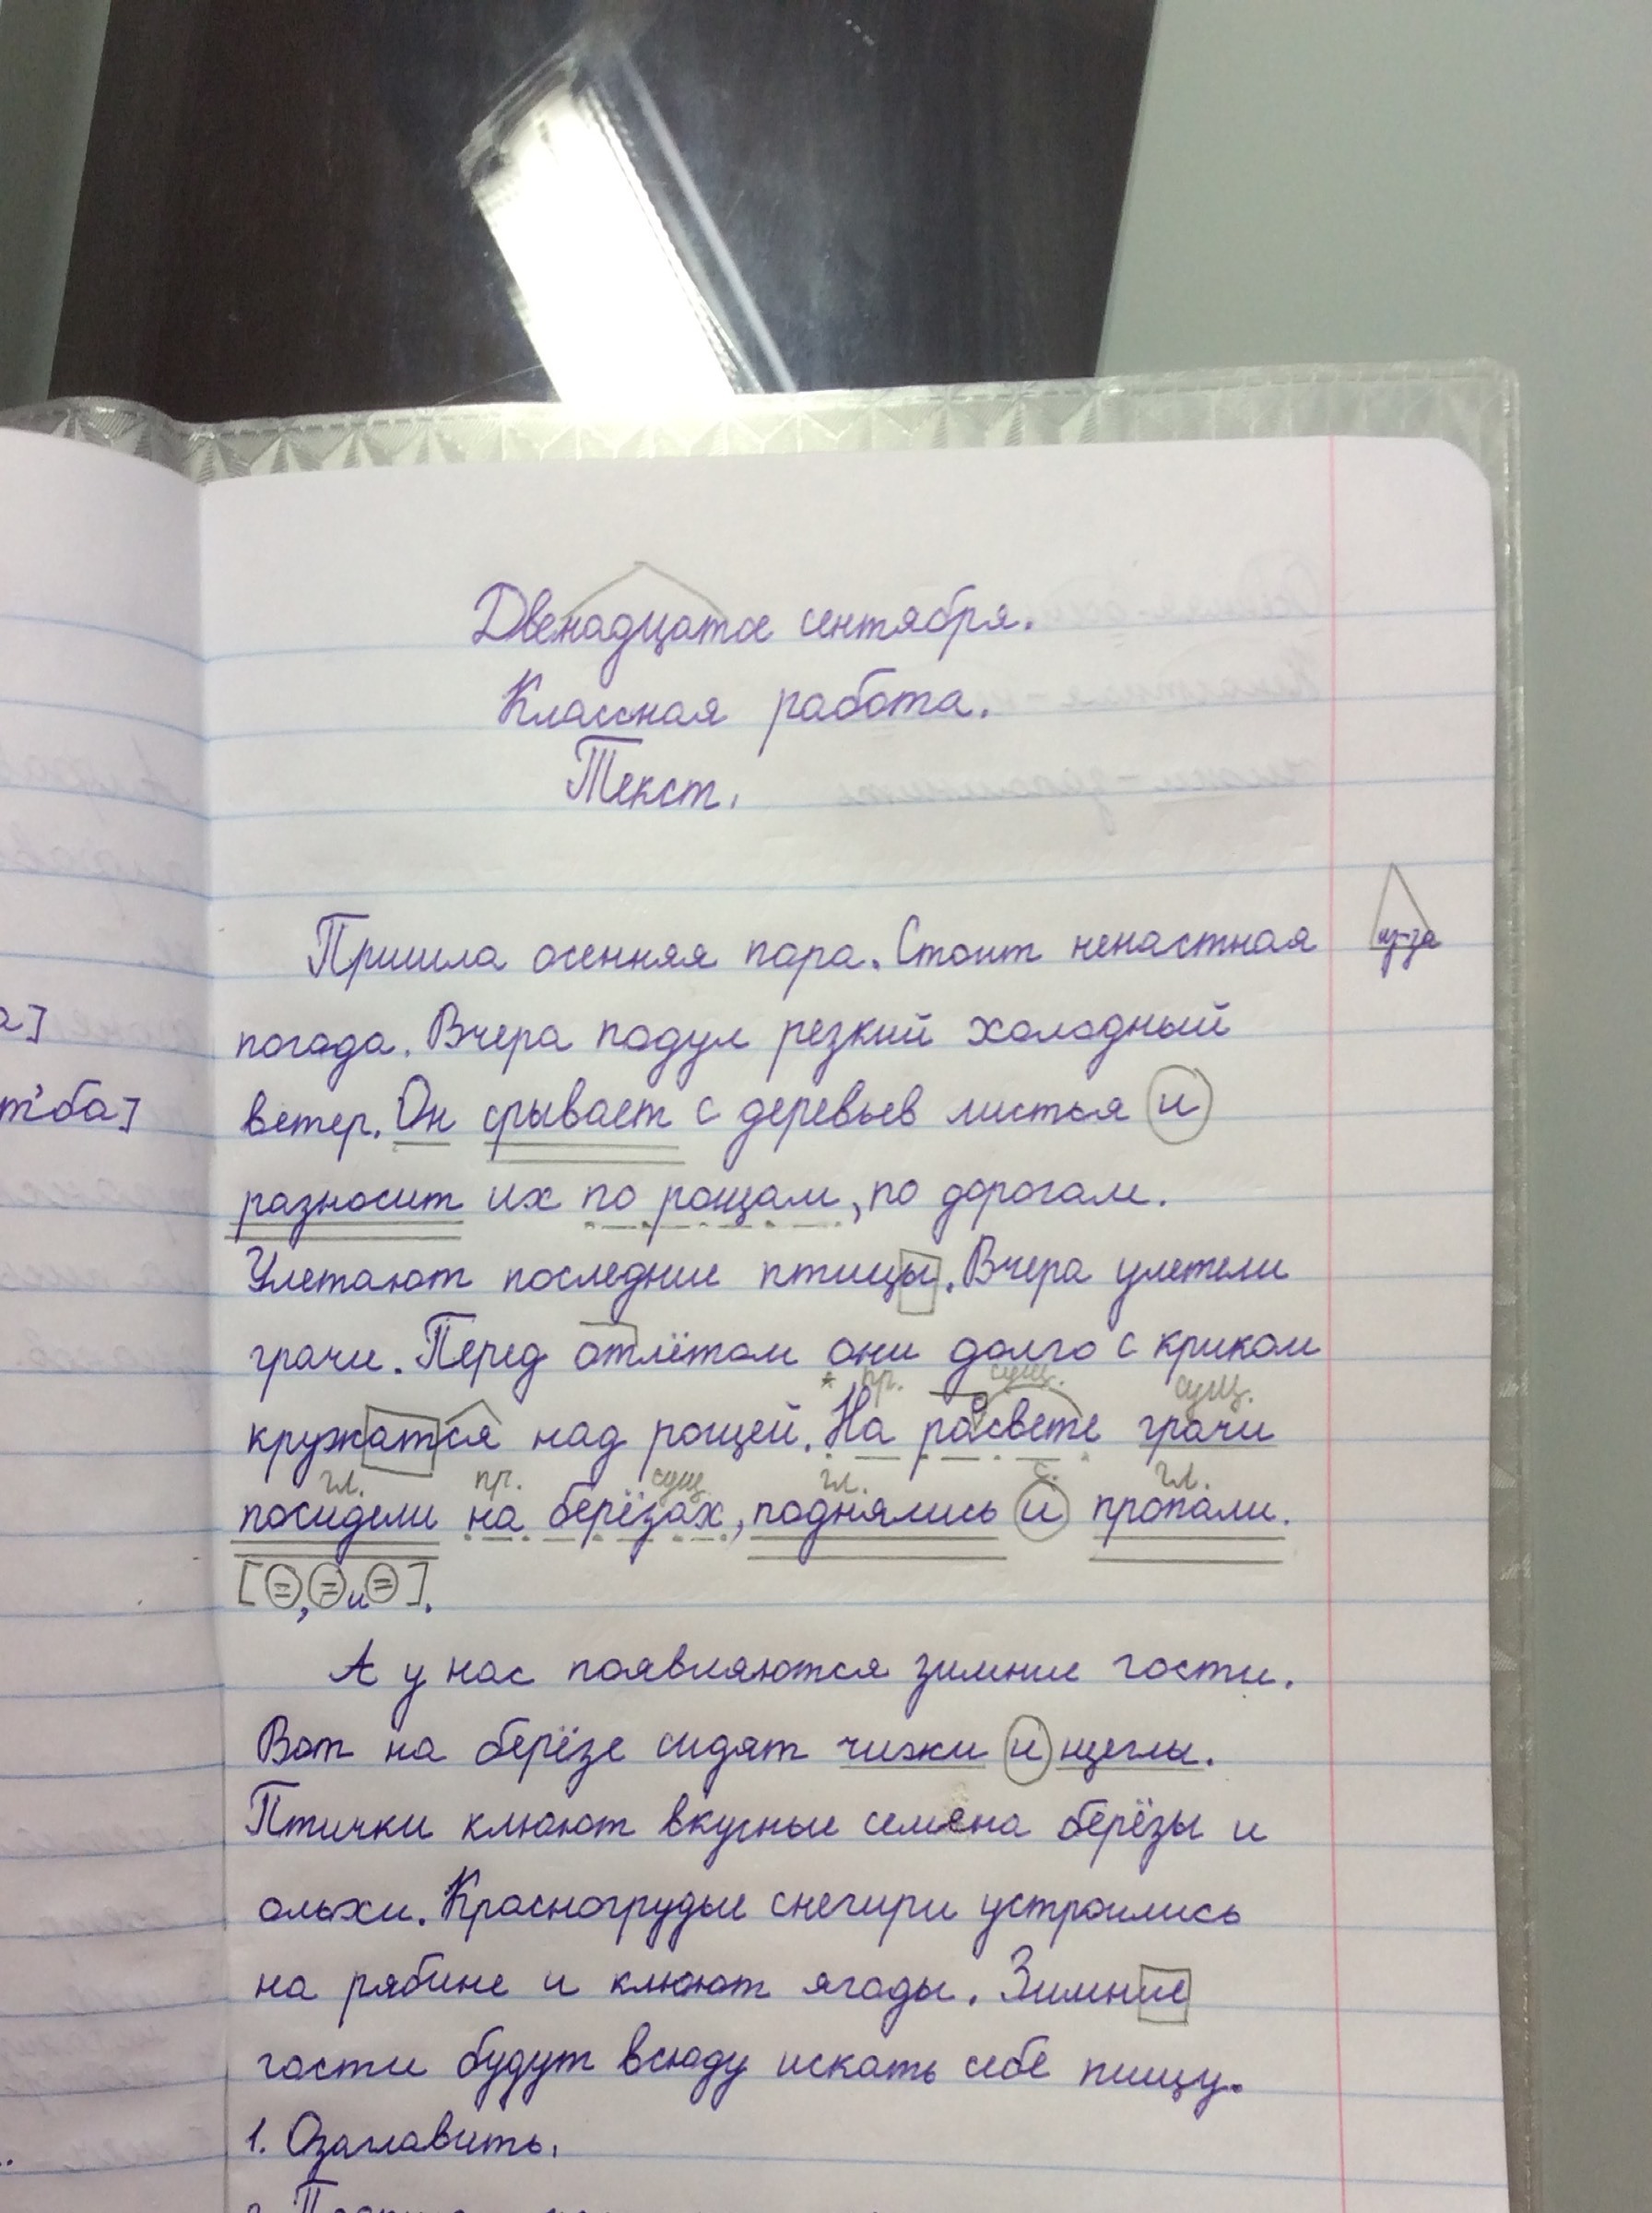 Двенадцатое сентября.
Классная работа.
Текст.
Пришла осенняя пора. Стоит ненастная
из-за
погода. Вчера подул резкий холодный
а]
ветер. Он срывает с деревьев листья и
т'ба]
разносит их по рощам, по дорогам.
Улетают последние птицы. Вчера улетели
грачи. Перед отлётом они долго с криком
* пр. сущ. сущ.
кружатся над рощей. На рассвете грачи
гл. пр. сущ. гл. с. гл.
посидели на берёзах, поднялись и пропали.
[=, = и =].
А у нас появляются зимние гости.
Вот на берёзе сидят чижи и щеглы.
Птички клюют вкусные семена берёзы и
ольхи. Красногрудые снегири устроились
на рябине и клюют ягоды. Зимние
гости будут всюду искать себе пищу.
1. Озаглавить.